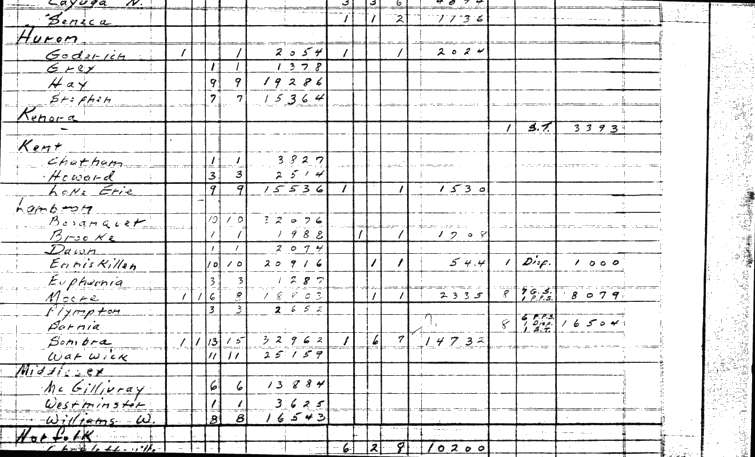 Cayuga N. 3 3 6 4894
Seneca 1 1 2 1136
Huron
Goderich 1 1 2054 1 1 2024
Grey 1 1 1378
Hay 9 9 19286
Stephen 7 7 15364
Kenora
- 1 S.T. 3393
Kent
Chatham 1 1 3827
Howard 3 3 2514
Lake Erie 9 9 15536 1 1 1530
Lambton
Bosanquet 10 10 32076
Brooke 1 1 1988 1 1 1708
Dawn 1 1 2074
Enniskillen 10 10 20916 1 1 544 1 Disp. 1000
Euphemia 3 3 1287
Moore 1 1 6 8 18803 1 1 2335 8 7 G.S. 8079
Plympton 3 3 2652
Sarnia 8 1 Disp. 16504
Sombra 1 1 13 15 32962 1 6 7 14732
Warwick 11 11 25159
Middlesex
McGillivray 6 6 13884
Westminster 1 1 3625
Williams W. 8 8 16543
Norfolk
6 2 8 10200